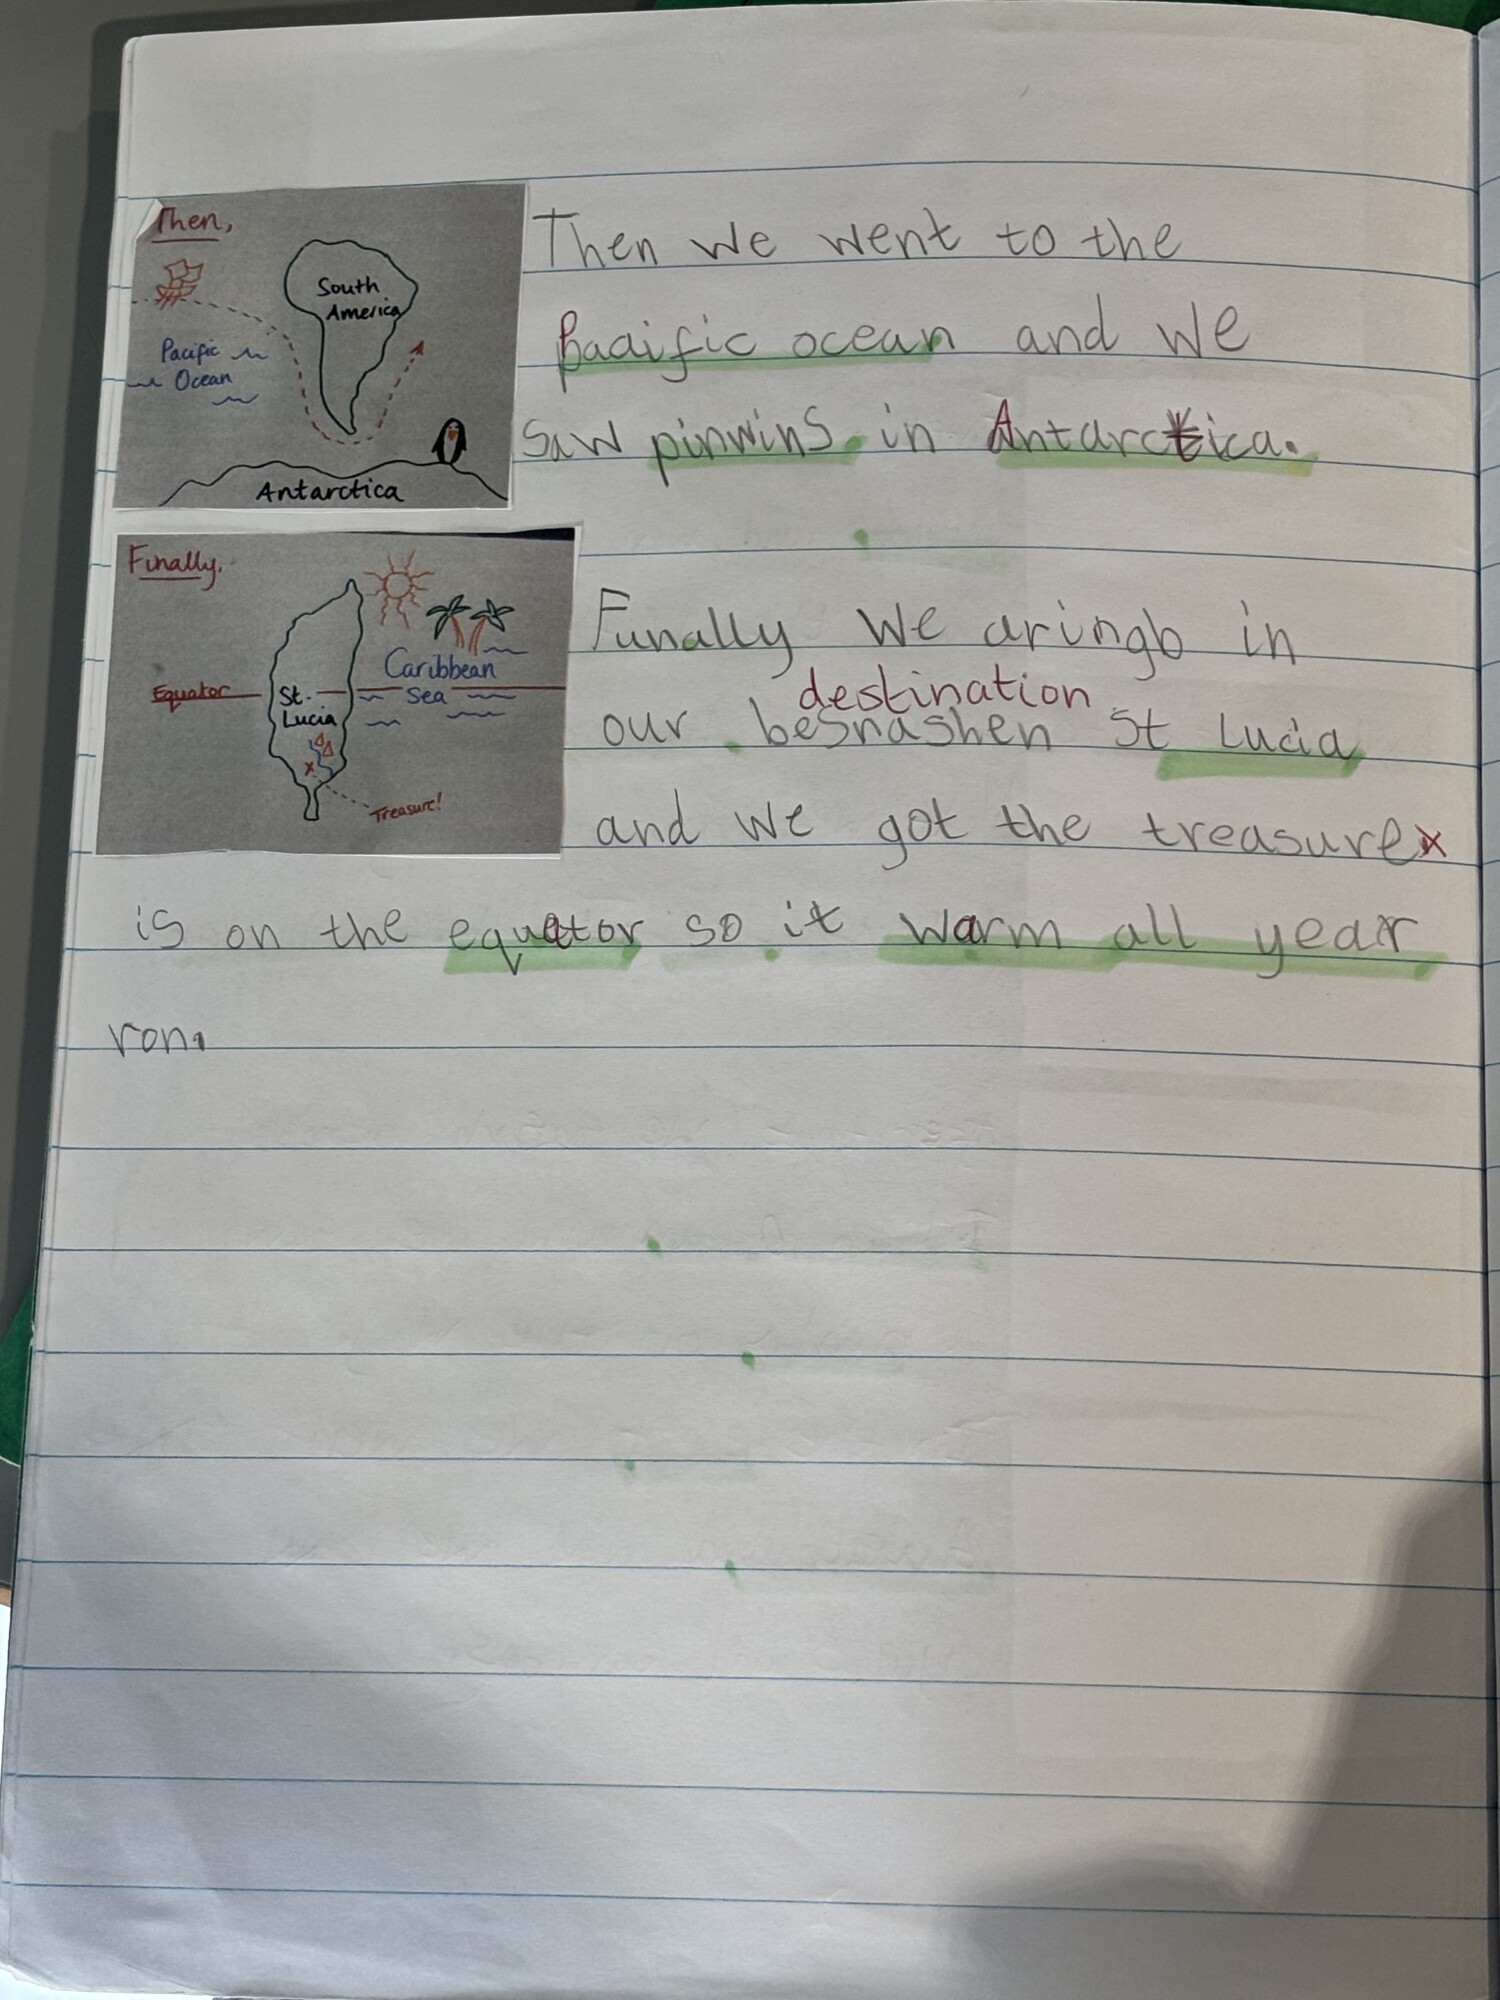 Then,
South
America
Pacific
Ocean
Antarctica
Then we went to the
Pacific ocean and we
saw pinwins in Antarctica.
Finally,
Equator
St.
Lucia
Caribbean
Sea
Treasure!
Funally we aringb in
destination
our besnashen st Lucia
and we got the treasure x
is on the equator so it warm all year
ron.